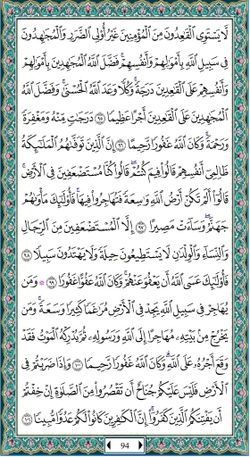 لَّا يَسْتَوِى ٱلْقَـٰعِدُونَ مِنَ ٱلْمُؤْمِنِينَ غَيْرُ أُو۟لِى ٱلضَّرَرِ وَٱلْمُجَـٰهِدُونَ
فِى سَبِيلِ ٱللَّهِ بِأَمْوَٰلِهِمْ وَأَنفُسِهِمْ ۚ فَضَّلَ ٱللَّهُ ٱلْمُجَـٰهِدِينَ بِأَمْوَٰلِهِمْ
وَأَنفُسِهِمْ عَلَى ٱلْقَـٰعِدِينَ دَرَجَةً ۚ وَكُلًّا وَعَدَ ٱللَّهُ ٱلْحُسْنَىٰ ۚ وَفَضَّلَ ٱللَّهُ
ٱلْمُجَـٰهِدِينَ عَلَى ٱلْقَـٰعِدِينَ أَجْرًا عَظِيمًا ٩٥ دَرَجَـٰتٍ مِّنْهُ وَمَغْفِرَةً
وَرَحْمَةً ۚ وَكَانَ ٱللَّهُ غَفُورًا رَّحِيمًا ٩٦ إِنَّ ٱلَّذِينَ تَوَفَّىٰهُمُ ٱلْمَلَـٰٓئِكَةُ
ظَالِمِىٓ أَنفُسِهِمْ قَالُوا۟ فِيمَ كُنتُمْ ۖ قَالُوا۟ كُنَّا مُسْتَضْعَفِينَ فِى ٱلْأَرْضِ ۚ
قَالُوٓا۟ أَلَمْ تَكُنْ أَرْضُ ٱللَّهِ وَٰسِعَةً فَتُهَاجِرُوا۟ فِيهَا ۚ فَأُو۟لَـٰٓئِكَ مَأْوَىٰهُمْ
جَهَنَّمُ ۖ وَسَآءَتْ مَصِيرًا ٩٧ إِلَّا ٱلْمُسْتَضْعَفِينَ مِنَ ٱلرِّجَالِ
وَٱلنِّسَآءِ وَٱلْوِلْدَٰنِ لَا يَسْتَطِيعُونَ حِيلَةً وَلَا يَهْتَدُونَ سَبِيلًا ٩٨
فَأُو۟لَـٰٓئِكَ عَسَى ٱللَّهُ أَن يَعْفُوَ عَنْهُمْ ۚ وَكَانَ ٱللَّهُ عَفُوًّا غَفُورًا ٩٩ ۞ وَمَن
يُهَاجِرْ فِى سَبِيلِ ٱللَّهِ يَجِدْ فِى ٱلْأَرْضِ مُرَٰغَمًا كَثِيرًا وَسَعَةً ۚ وَمَن
يَخْرُجْ مِنۢ بَيْتِهِۦ مُهَاجِرًا إِلَى ٱللَّهِ وَرَسُولِهِۦ ثُمَّ يُدْرِكْهُ ٱلْمَوْتُ فَقَدْ
وَقَعَ أَجْرُهُۥ عَلَى ٱللَّهِ ۗ وَكَانَ ٱللَّهُ غَفُورًا رَّحِيمًا ١٠٠ وَإِذَا ضَرَبْتُمْ فِى
ٱلْأَرْضِ فَلَيْسَ عَلَيْكُمْ جُنَاحٌ أَن تَقْصُرُوا۟ مِنَ ٱلصَّلَوٰةِ إِنْ خِفْتُمْ
أَن يَفْتِنَكُمُ ٱلَّذِينَ كَفَرُوٓا۟ ۚ إِنَّ ٱلْكَـٰفِرِينَ كَانُوا۟ لَكُمْ عَدُوًّا مُّبِينًا ١٠١
94